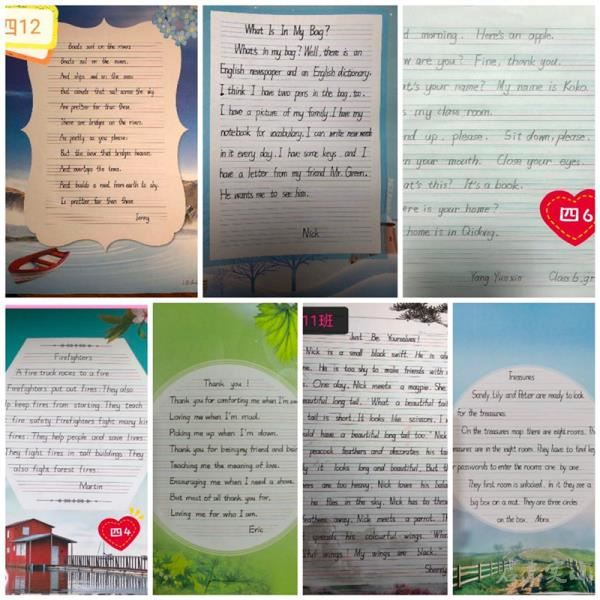 四12
Boats sail on the rivers
Boats sail on the rivers,
And ships sail on the seas
But clouds that sail across the sky
Are prettier far than these.
There are bridges on the rivers,
As pretty as you please;
But the bow that bridges heaven,
And overtops the trees,
And builds a road from earth to sky,
Is prettier far than these
Jenny
What Is In My Bag?
What's in my bag? Well, there is an
English newspaper and an English dictionary.
I think I have two pens in the bag, too.
I have a picture of my family. I have my
notebook for vocabulary. I can write new words
in it every day. I have some keys, and I
have a letter from my friend Mr. Green.
He wants me to see him.
Nick
d morning. Here's an apple.
w are you? Fine, thank you.
t's your name? My name is Koko.
s my class room.
nd up, please. Sit down, please.
n your mouth. Close your eyes.
at's this? It's a book.
ere is your home?
home is in Qidong.
四6
Yang Yuxin Class 6, gr
Firefighters
A fire truck races to a fire.
Firefighters put out fires. They also
lp keep fires from starting. They teach
fire safety. Firefighters fight many kin
fires. They help people and save lives.
They fight fires in tall buildings. They
also fight forest fires.
Martin
四4
Thank you!
Thank you for comforting me when I'm sa
Loving me when I'm mad.
Picking me up when I'm down.
Thank you for being my friend and bei
Teaching me the meaning of love.
Encouraging me when I need a shove.
But most of all thank you for,
Loving me for who I am.
Eric
11班
Just Be Yourselves!
Nick is a small black swift. He is al
e. He is too shy to make friends with
s. One day, Nick meets a magpie. She
eautiful long tail. What a beautiful
tail is short. It looks like scissors. I
uld have a beautiful long tail too. Nick
peacock feathers and decorates his
ly it looks long and beautiful. But th
ers are too heavy; Nick loses his bala
he flies in the sky. Nick has to thro
feathers away. Nick meets a parrot. Th
spreads his colourful wings. What
tiful wings. My wings are black.
Sherry
Treasures
Sandy, Lily and Peter are ready to look
for the treasures.
On the treasures map there are eight rooms. Th
easures are in the eight room. They have to find key
or passwords to enter the rooms one by one.
They first room is unlocked. in it, they see a
big box on a mat. They are three circles
on the box. Nora